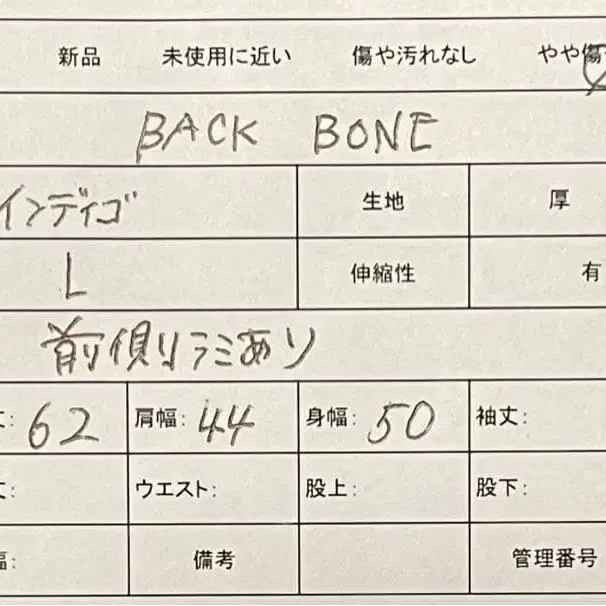 新品 未使用に近い 傷や汚れなし やや傷
BACK BONE
インディゴ 生地 厚
L 伸縮性 有
前側シミあり
丈: 62 肩幅: 44 身幅: 50 袖丈:
丈: ウエスト: 股上: 股下:
幅: 備考 管理番号